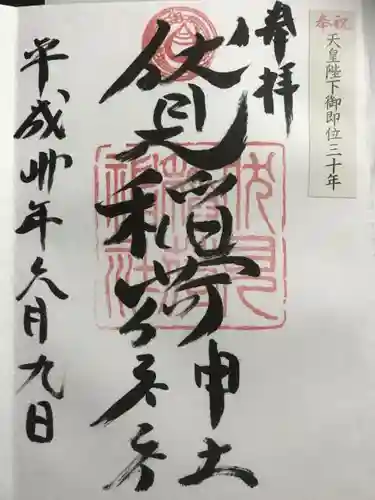 奉祝
天皇陛下御即位三十年
奉拝
伏見稲荷神社
平成卅年六月九日